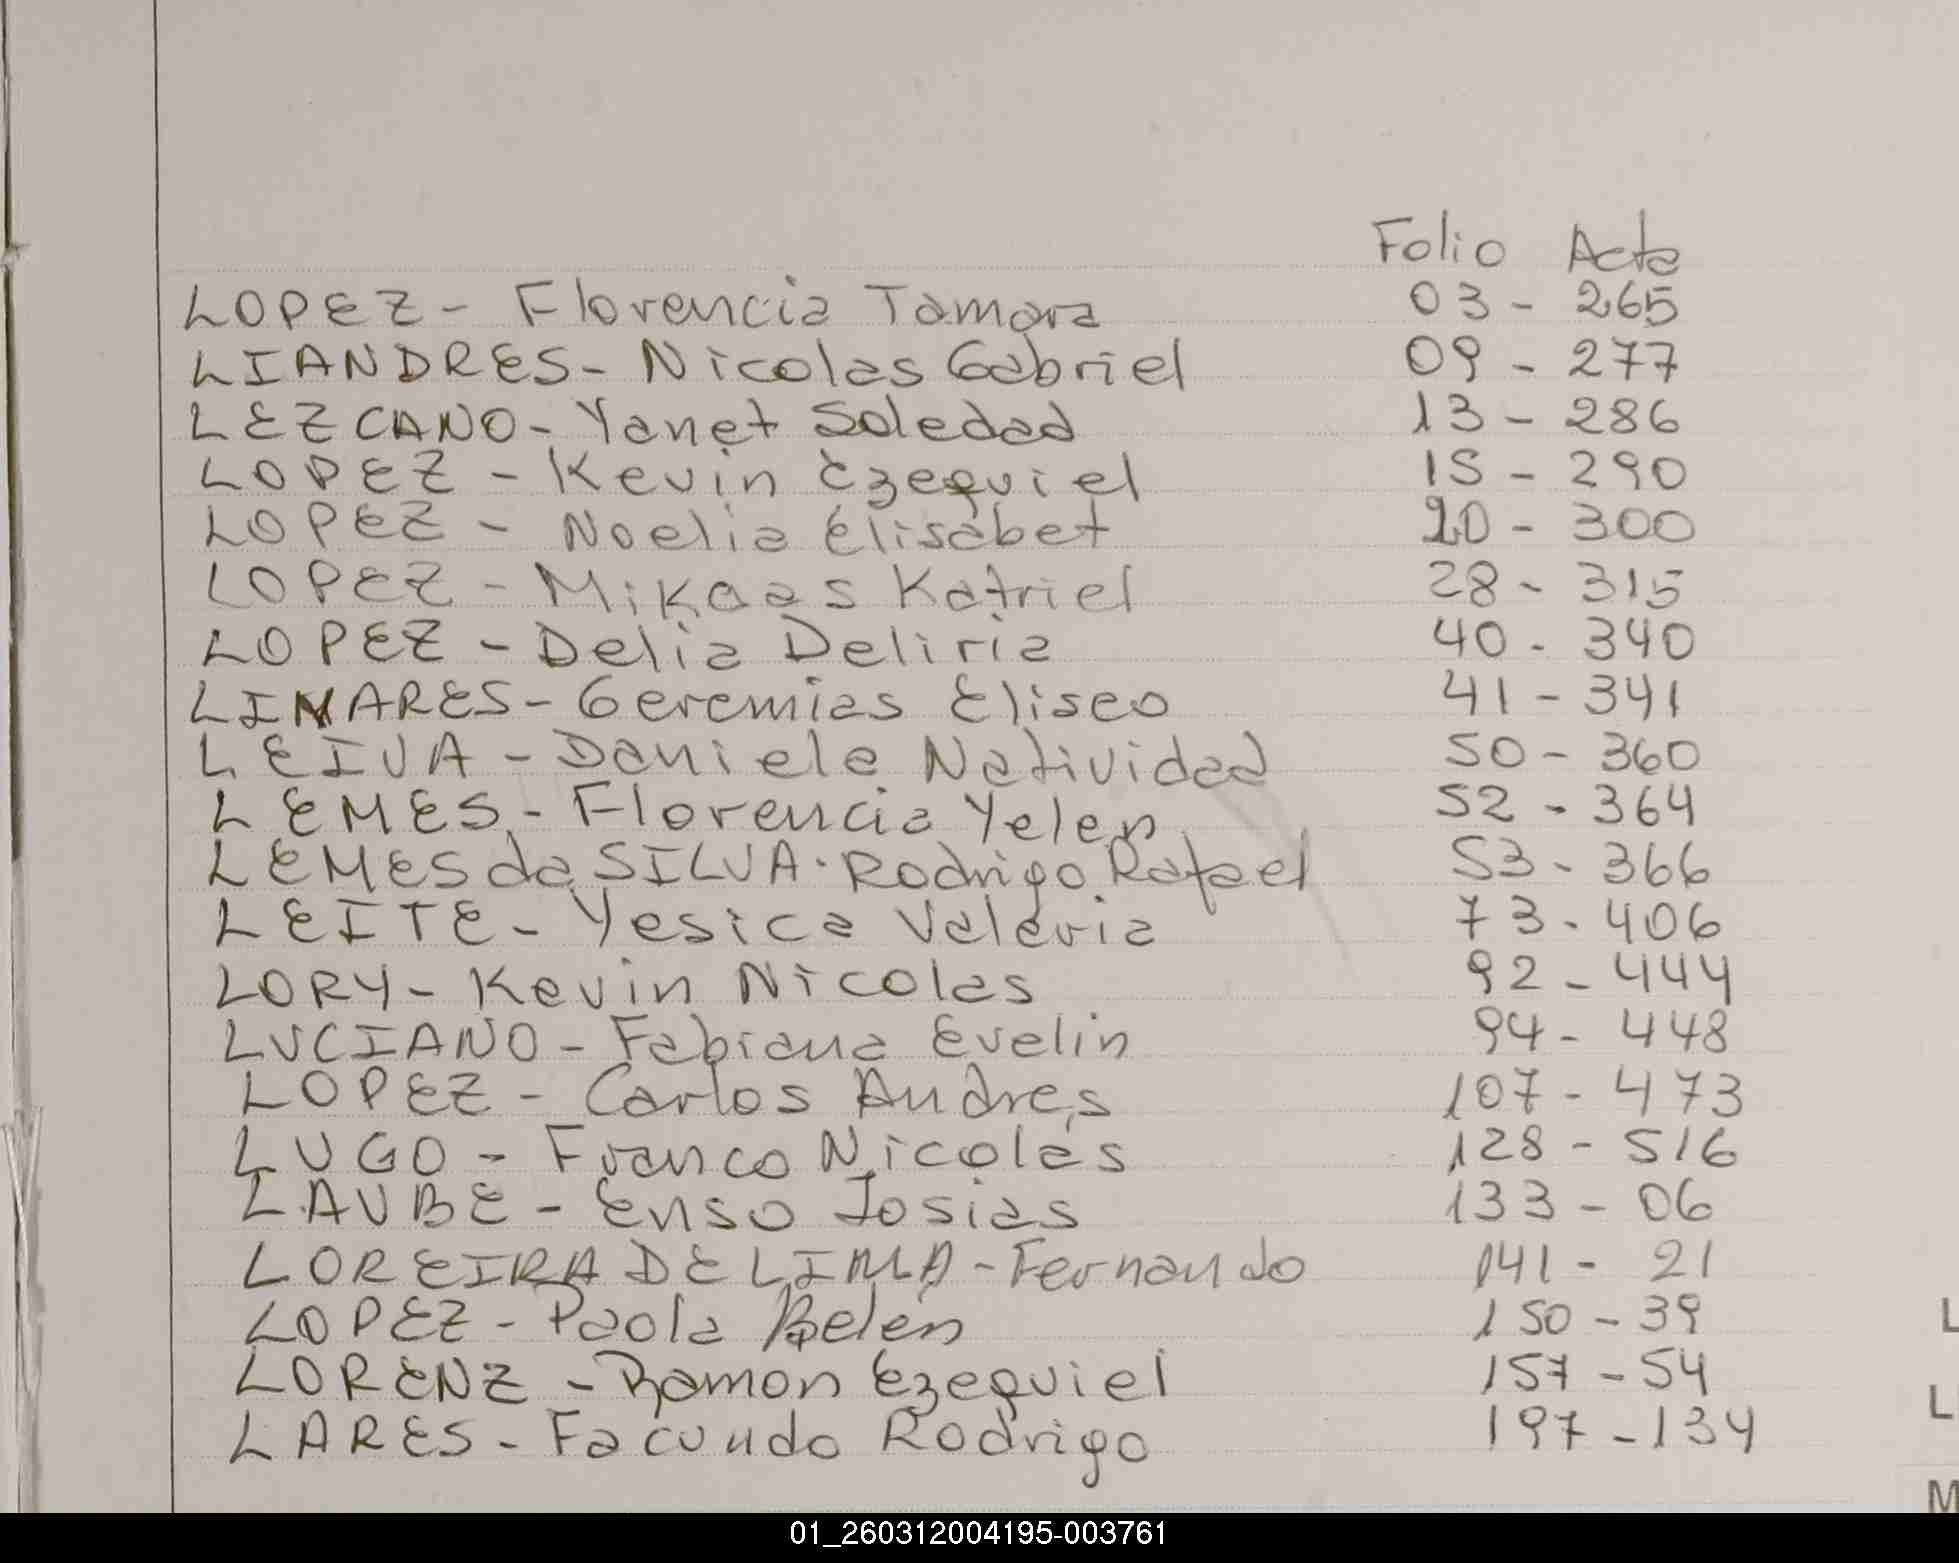 Folio Acta
LOPEZ - Florencia Tamara 03 - 265
LIANDRES - Nicolas Gabriel 09 - 277
LEZCANO - Yanet Soledad 13 - 286
LOPEZ - Kevin Ezequiel 15 - 290
LOPEZ - Noelia Elisabet 20 - 300
LOPEZ - Mikaas Katriel 28 - 315
LOPEZ - Delia Deliria 40 - 340
LINARES - Geremias Eliseo 41 - 341
LEIVA - Daniela Natividad 50 - 360
LEMES - Florencia Yelen 52 - 364
LEMES da SILVA - Rodrigo Rafael 53 - 366
LEITE - Yesica Valeria 73 - 406
LORY - Kevin Nicolas 92 - 444
LUCIANO - Fabiana Evelin 94 - 448
LOPEZ - Carlos Andres 107 - 473
LUGO - Franco Nicolás 128 - 516
LAUBE - Enso Josias 133 - 06
LOREIRA DE LIMA - Fernando 141 - 21
LOPEZ - Paola Belén 150 - 39
LORENZ - Ramon Ezequiel 157 - 54
LARES - Facundo Rodrigo 197 - 134
L
L
M
01_260312004195-003761